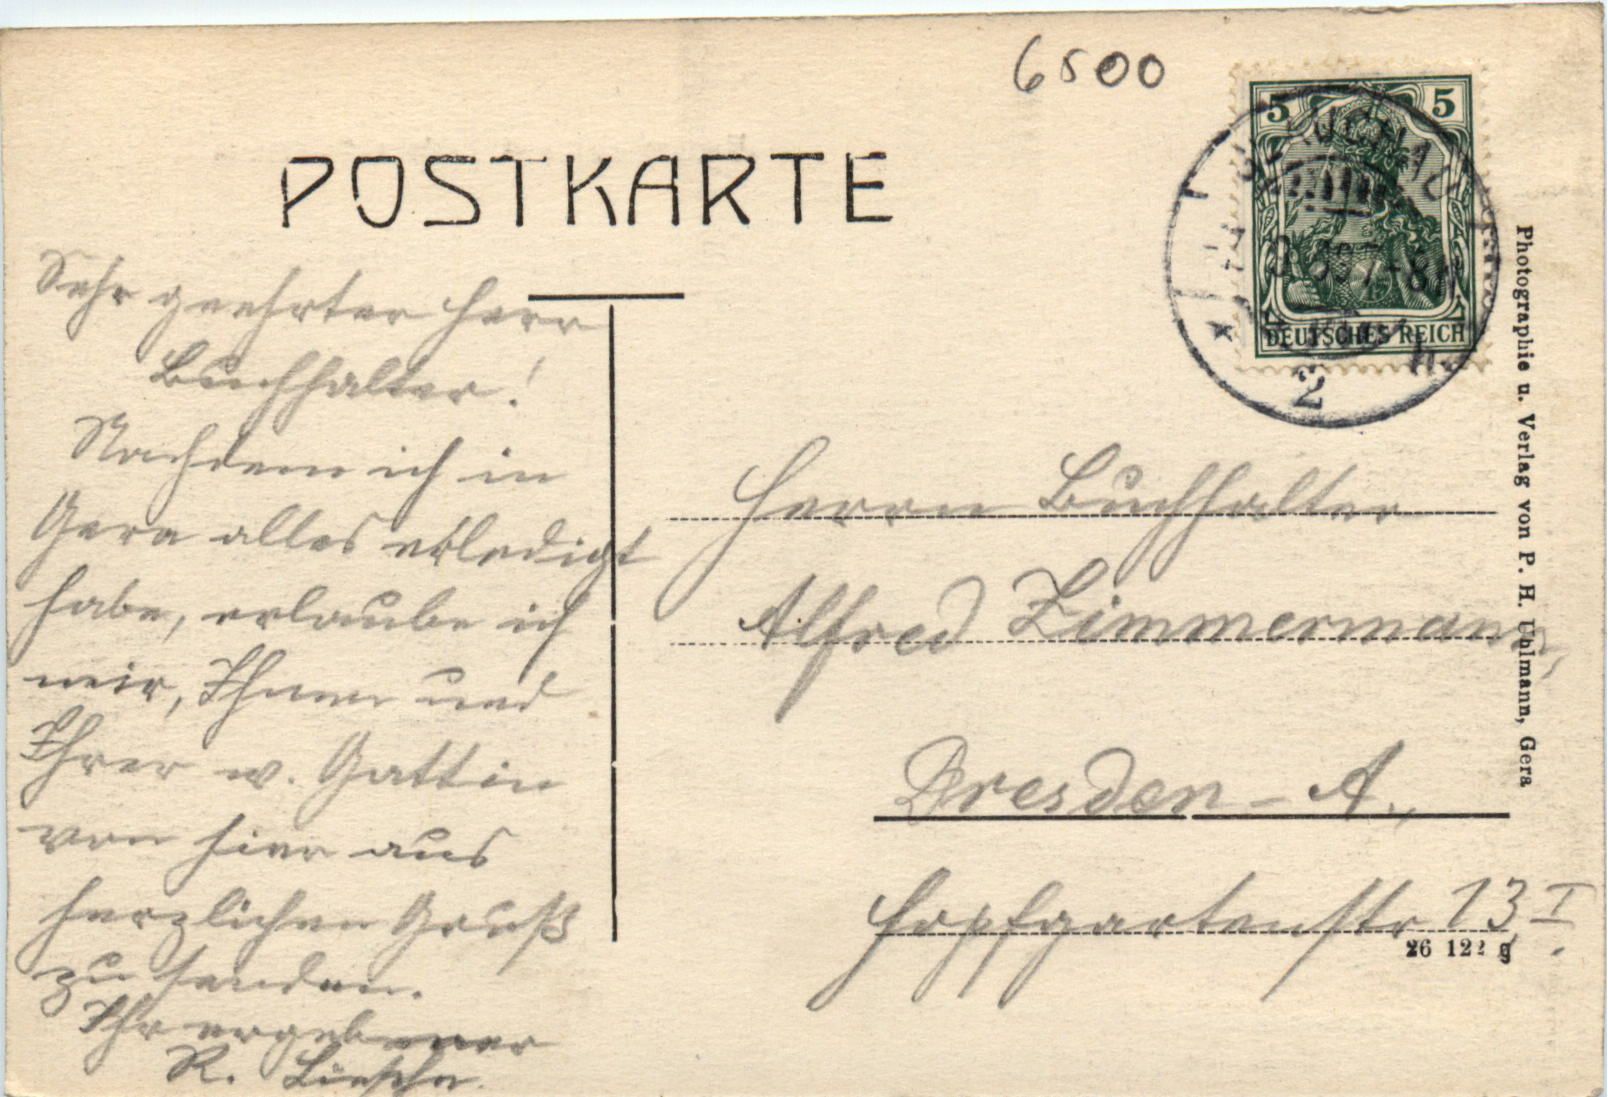 6500
POSTKARTE
5 5
DEUTSCHES REICH
2
Sehr geehrter Herr
Buchhalter!
Nachdem ich in
Gera alles erledigt
habe, erlaube ich
mir, Ihnen und
Ihrer w. Gattin
von hier aus
herzlichen Gruß
zu senden.
Ihr ergebener
R.
Herrn Buchhalter
Alfred Zimmermann,
Dresden-A.,
Hopfgartenstr 13, I.
26 122 g
Photographie u. Verlag von P. H. Uhlmann, Gera